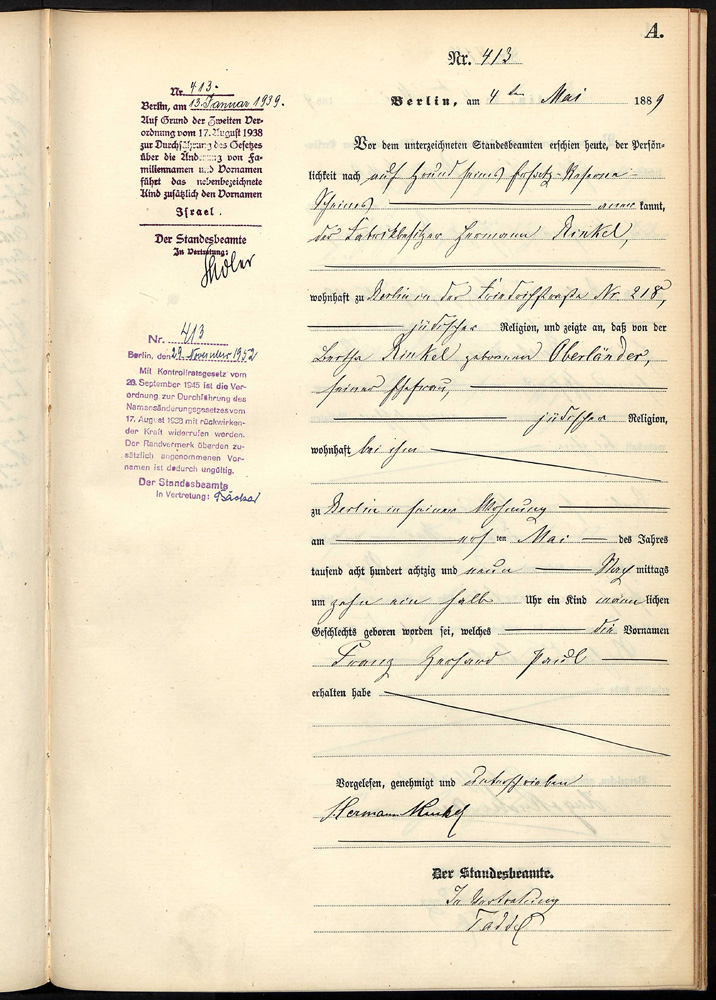 A.
Nr. 413
Berlin, am 4ten Mai 1889
Vor dem unterzeichneten Standesbeamten erschien heute, der Persön-
lichkeit nach auf Grund seines Ersatz-Reserve-
Scheines anerkannt,
der Fabrikbesitzer Hermann Rinkel,
wohnhaft zu Berlin in der Friedrichstraße Nr. 218,
jüdischer Religion, und zeigte an, daß von der
Bertha Rinkel geborenen Oberländer,
seiner Ehefrau,
jüdischer Religion,
wohnhaft bei ihm
zu Berlin in seiner Wohnung
am ten Mai des Jahres
tausend acht hundert achtzig und neun mittags
um zehn ein halb Uhr ein Kind männlichen
Geschlechts geboren worden sei, welches die Vornamen
Franz Gerhard Paul
erhalten habe
Vorgelesen, genehmigt und unterschrieben
Hermann Rinkel
Der Standesbeamte.
In Vertretung
Nr. 413.
Berlin, am 13. Januar 1939.
Auf Grund der Zweiten Ver-
ordnung vom 17. August 1938
zur Durchführung des Gesetzes
über die Änderung von Fa-
miliennamen und Vornamen
führt das nebenbezeichnete
Kind zusätzlich den Vornamen
Israel.
Der Standesbeamte
In Vertretung:
Nr. 413
Berlin, den 29. November 1952
Mit Kontrollratsgesetz vom
20. September 1945 ist die Ver-
ordnung zur Durchführung des
Namensänderungsgesetzes vom
17. August 1938 mit rückwirken-
der Kraft widerrufen worden.
Der Randvermerk über den zu-
sätzlich angenommenen Vor-
namen ist dadurch ungültig.
Der Standesbeamte
In Vertretung: